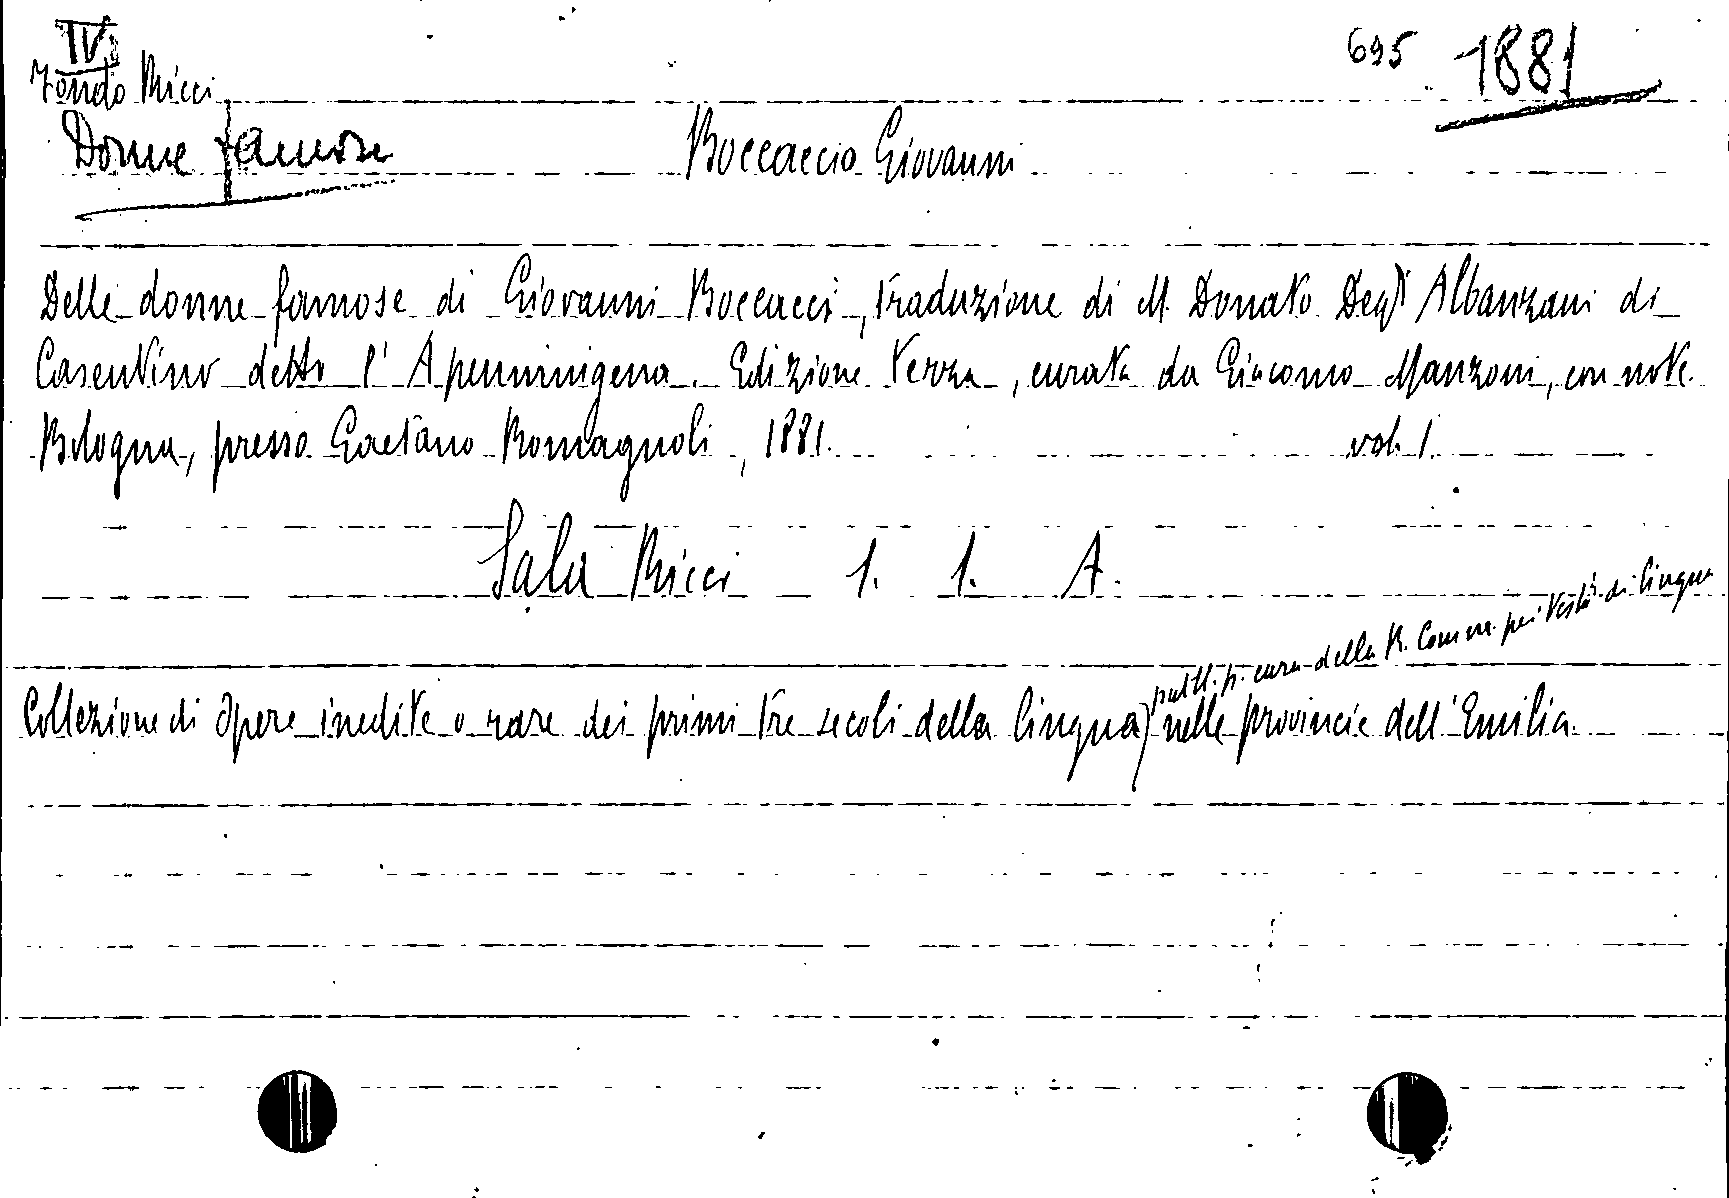 IV
695 1881
Fondo Ricci
Donne famose
Boccaccio Giovanni
Delle donne famose di Giovanni Boccacci, traduzione di M. Donato Degli Albanzani di
Casentino detto l'Apenninigena. Edizione terza, curata da Giacomo Manzoni, con note.
Bologna, presso Gaetano Romagnoli, 1881. vol. 1.
Sala Ricci 1. 1. A.
pubbl. p. cura della R. Comm. pei testi di lingua
Collezione di opere inedite o rare dei primi tre secoli della lingua) nelle provincie dell'Emilia.